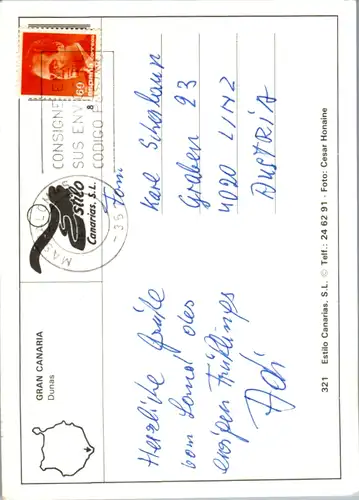 GRAN CANARIA
Dunas
Herzliche Grüße
vom Land des
ewigen Frühlings
Adi
Estilo
Canarias, S.L.
CONSIGNE
SUS ENV
CODIGO
Fam
Karl
Graben 23
4020 LINZ
AUSTRIA
321 Estilo Canarias, S.L. © Telf.: 24 62 91 - Foto: Cesar Honaine